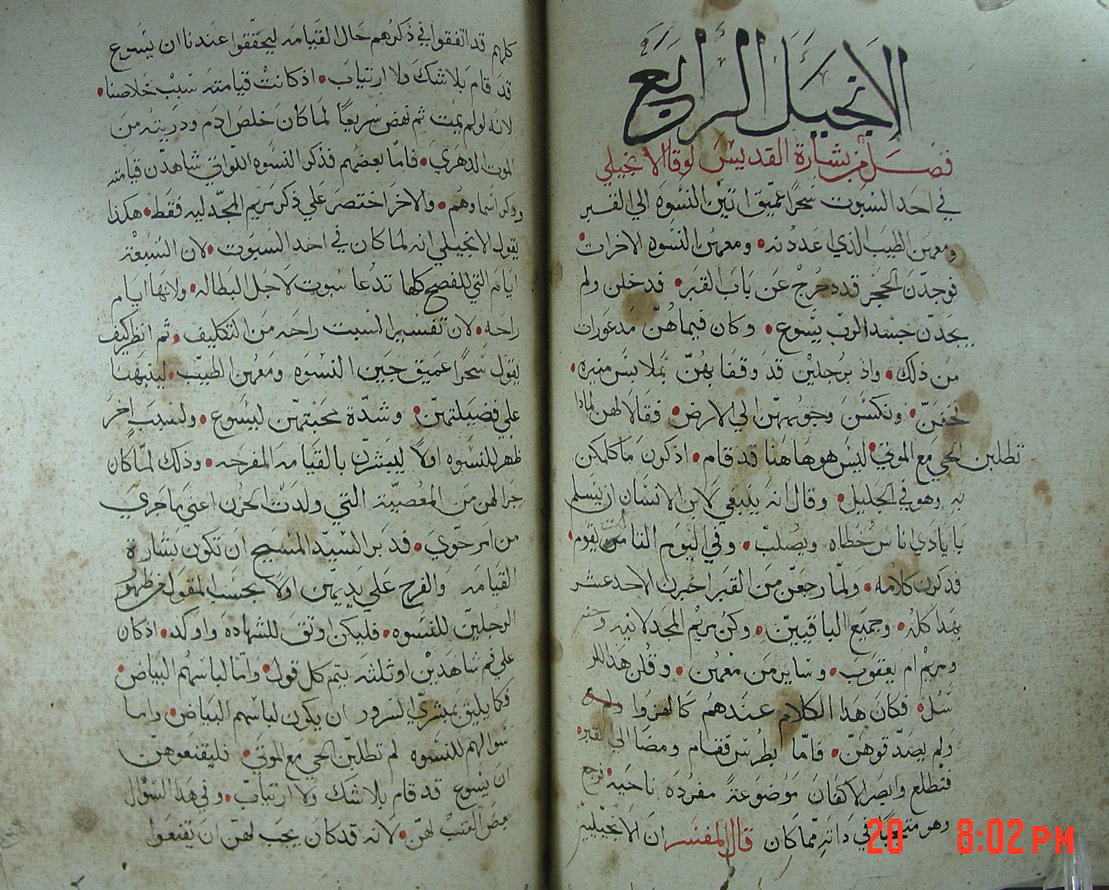 الانجيل الرابع
فصل من بشارة القديس لوقا الانجيلي
في احد السبوت سحرًا عميق اتين النسوه الي القبر
ومعهن الطيب الذي اعددنه • ومعهن النسوه الاخرات •
فوجدن الحجر قد دحرج عن باب القبر • فدخلن ولم
يجدن جسد الرب يسوع • وكان فيما هن مدعورات
من ذلك • واذ برجلين قد وقفا بهن بملابس منيره •
فخفن • ونكسن وجوههن الي الارض • فقالا لهن لماذا
تطلبن الحي مع الموتي • ليس هو هاهنا قد قام • اذكرن ما كلمكن
به وهو في الجليل • وقال انه ينبغي لابن الانسان ان يسلم
بايادي اناس خطاه ويصلب • وفي اليوم الثالث يقوم •
فذكرن كلامه • ولما رجعن من القبر اخبرن الاحد عشر
بهذا كله • وجميع الباقيين • وكن مريم المجدلانيه وحنه
ومريم ام يعقوب • وساير من معهن • وقلن هذا للر
سل • فكان هذا الكلام عندهم كالهزو
ولم يصدقوهن • فاما بطرس فقام ومضا الي القبر •
فتطلع وابصر الاكفان موضوعة مفرده ناحية • فرجع
وهو متعجبًا في ذاته مما كان قال المفسر ان الانجيليه
كلهم قد اتفقوا في ذكرهم حال القيامه ليحققوا عندنا ان يسوع
قد قام بلا شك ولا ارتياب • اذ كانت قيامته سبب خلاصنا •
لانه لو لم يمت ثم نهض سريعًا لما كان خلص ادم وذريته من
الموت الدهري • فاما بعضهم فذكر النسوه اللواتي شاهدن قيامته
وذكر اسماوهم • والاخر اختصر علي ذكر مريم المجدليه فقط • هكذا
يقول الانجيلي انه لما كان في احد السبوت • لان التسعة
ايام التي للفصح كلها تدعا سبوت لاجل البطاله • ولانها ايام
راحه • لان تفسير السبت راحه من التكليف • ثم انظر كيف
يقول سحرًا عميق جين النسوه ومعهن الطيب • لينبهنا
علي فضيلتهن • وشدة محبتهن ليسوع • ولسبب اخر
ظهر للنسوه اولا ليبشرن بالقيامه المفرحه • وذلك لما كان
جرا لهن من المعصيه التي ولدت الحزن اعني ما جري
من امر حوي • فدبر السيد المسيح ان تكون بشارة
القيامه والفرح علي يديهن اولا بحسب المقول عن ظهور
الرجلين للنسوه • فليكن اوثق للشهاده واوكد • اذ كان
علي فم شاهدين او ثلثه يتم كل قول • واما لباسهم البياض •
فكما يليق بمبشري السرور ان يكون لباسهم البياض • واما
سوالهم للنسوه لم تطلبن الحي مع الموتي • فليقنعوهن
ان يسوع قد قام بلا شك ولا ارتياب • وفي هذا السؤال
بعض العتب لهن • لانه قد كان يجب لهن ان يقنعوا
20 8:02 PM